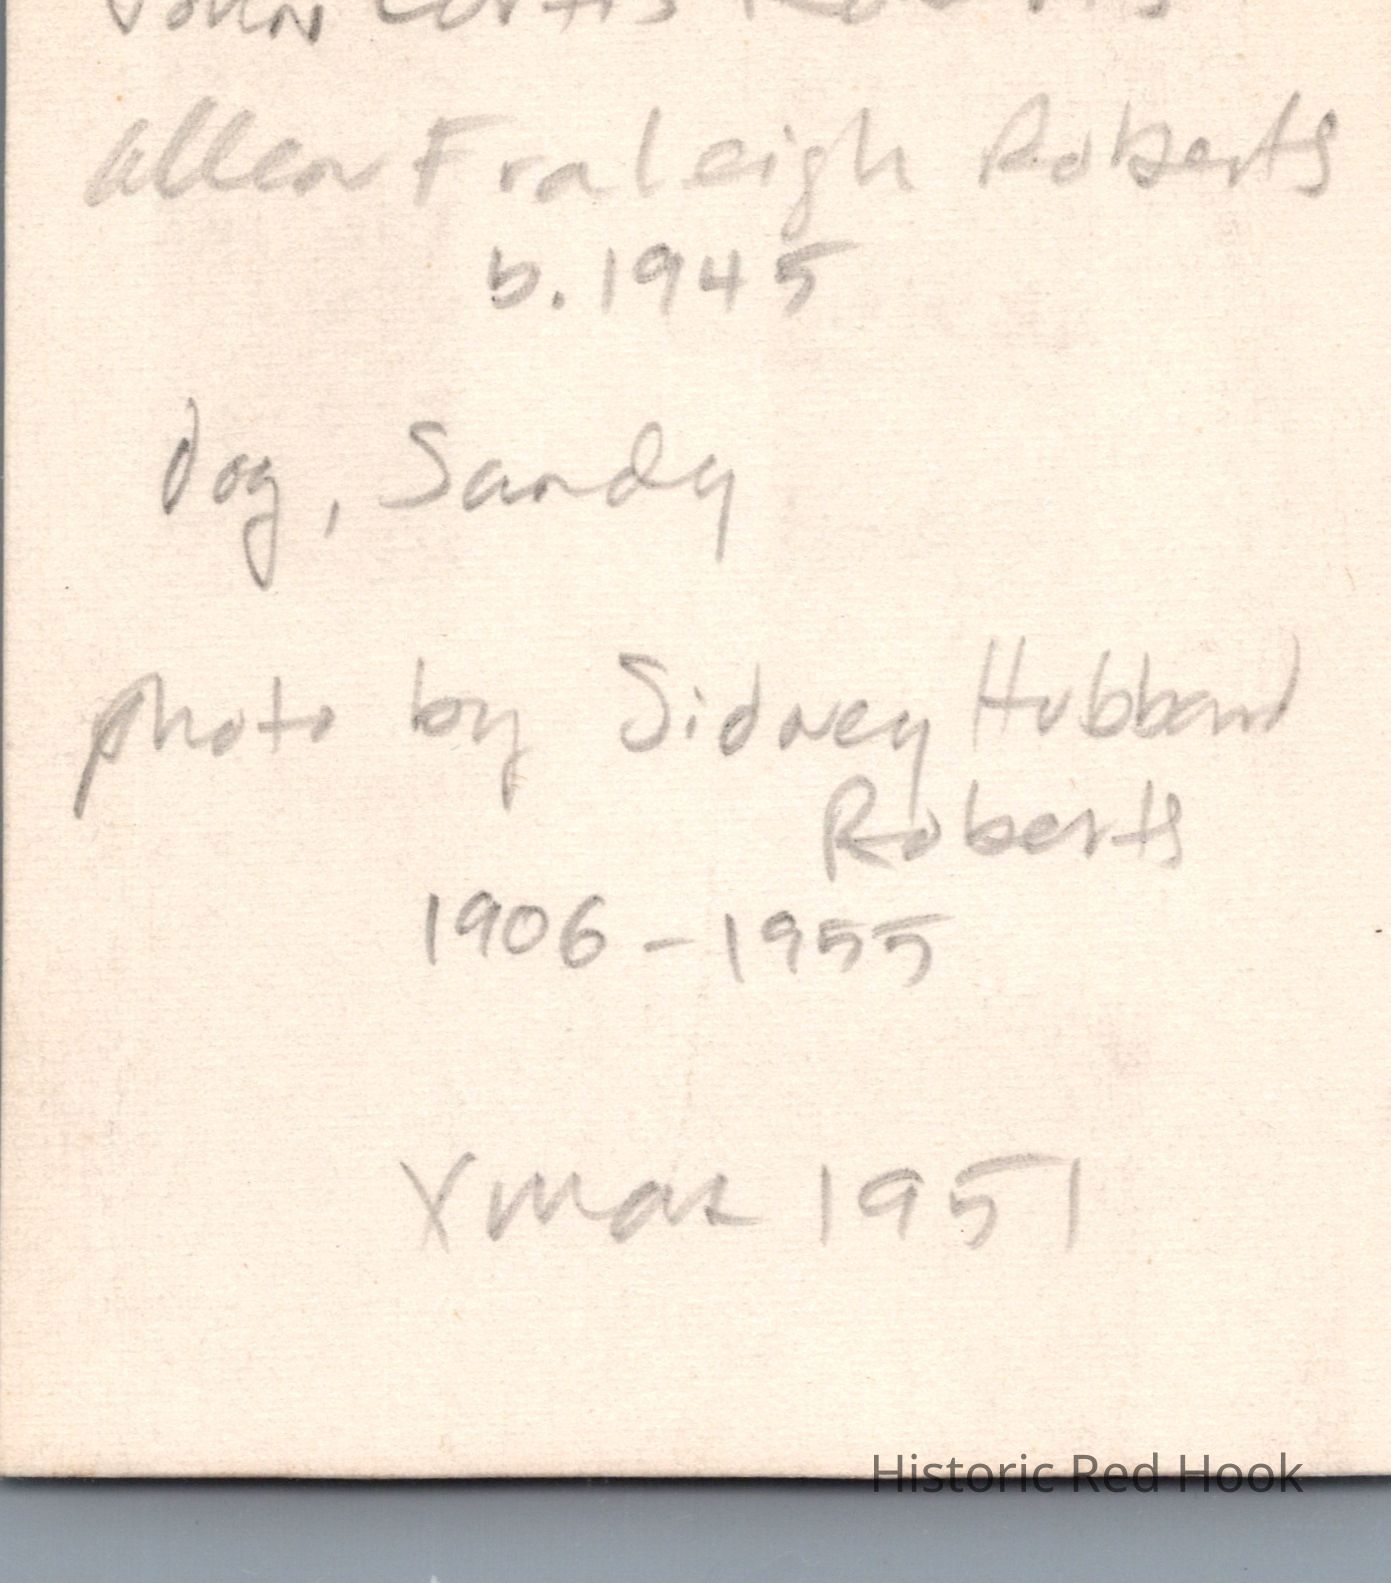 John Curtis Roberts
Allen Fraleigh Roberts
b. 1945
Dog, Sandy
photo by Sidney Hubbard
Roberts
1906-1955
Xmas 1951
Historic Red Hook